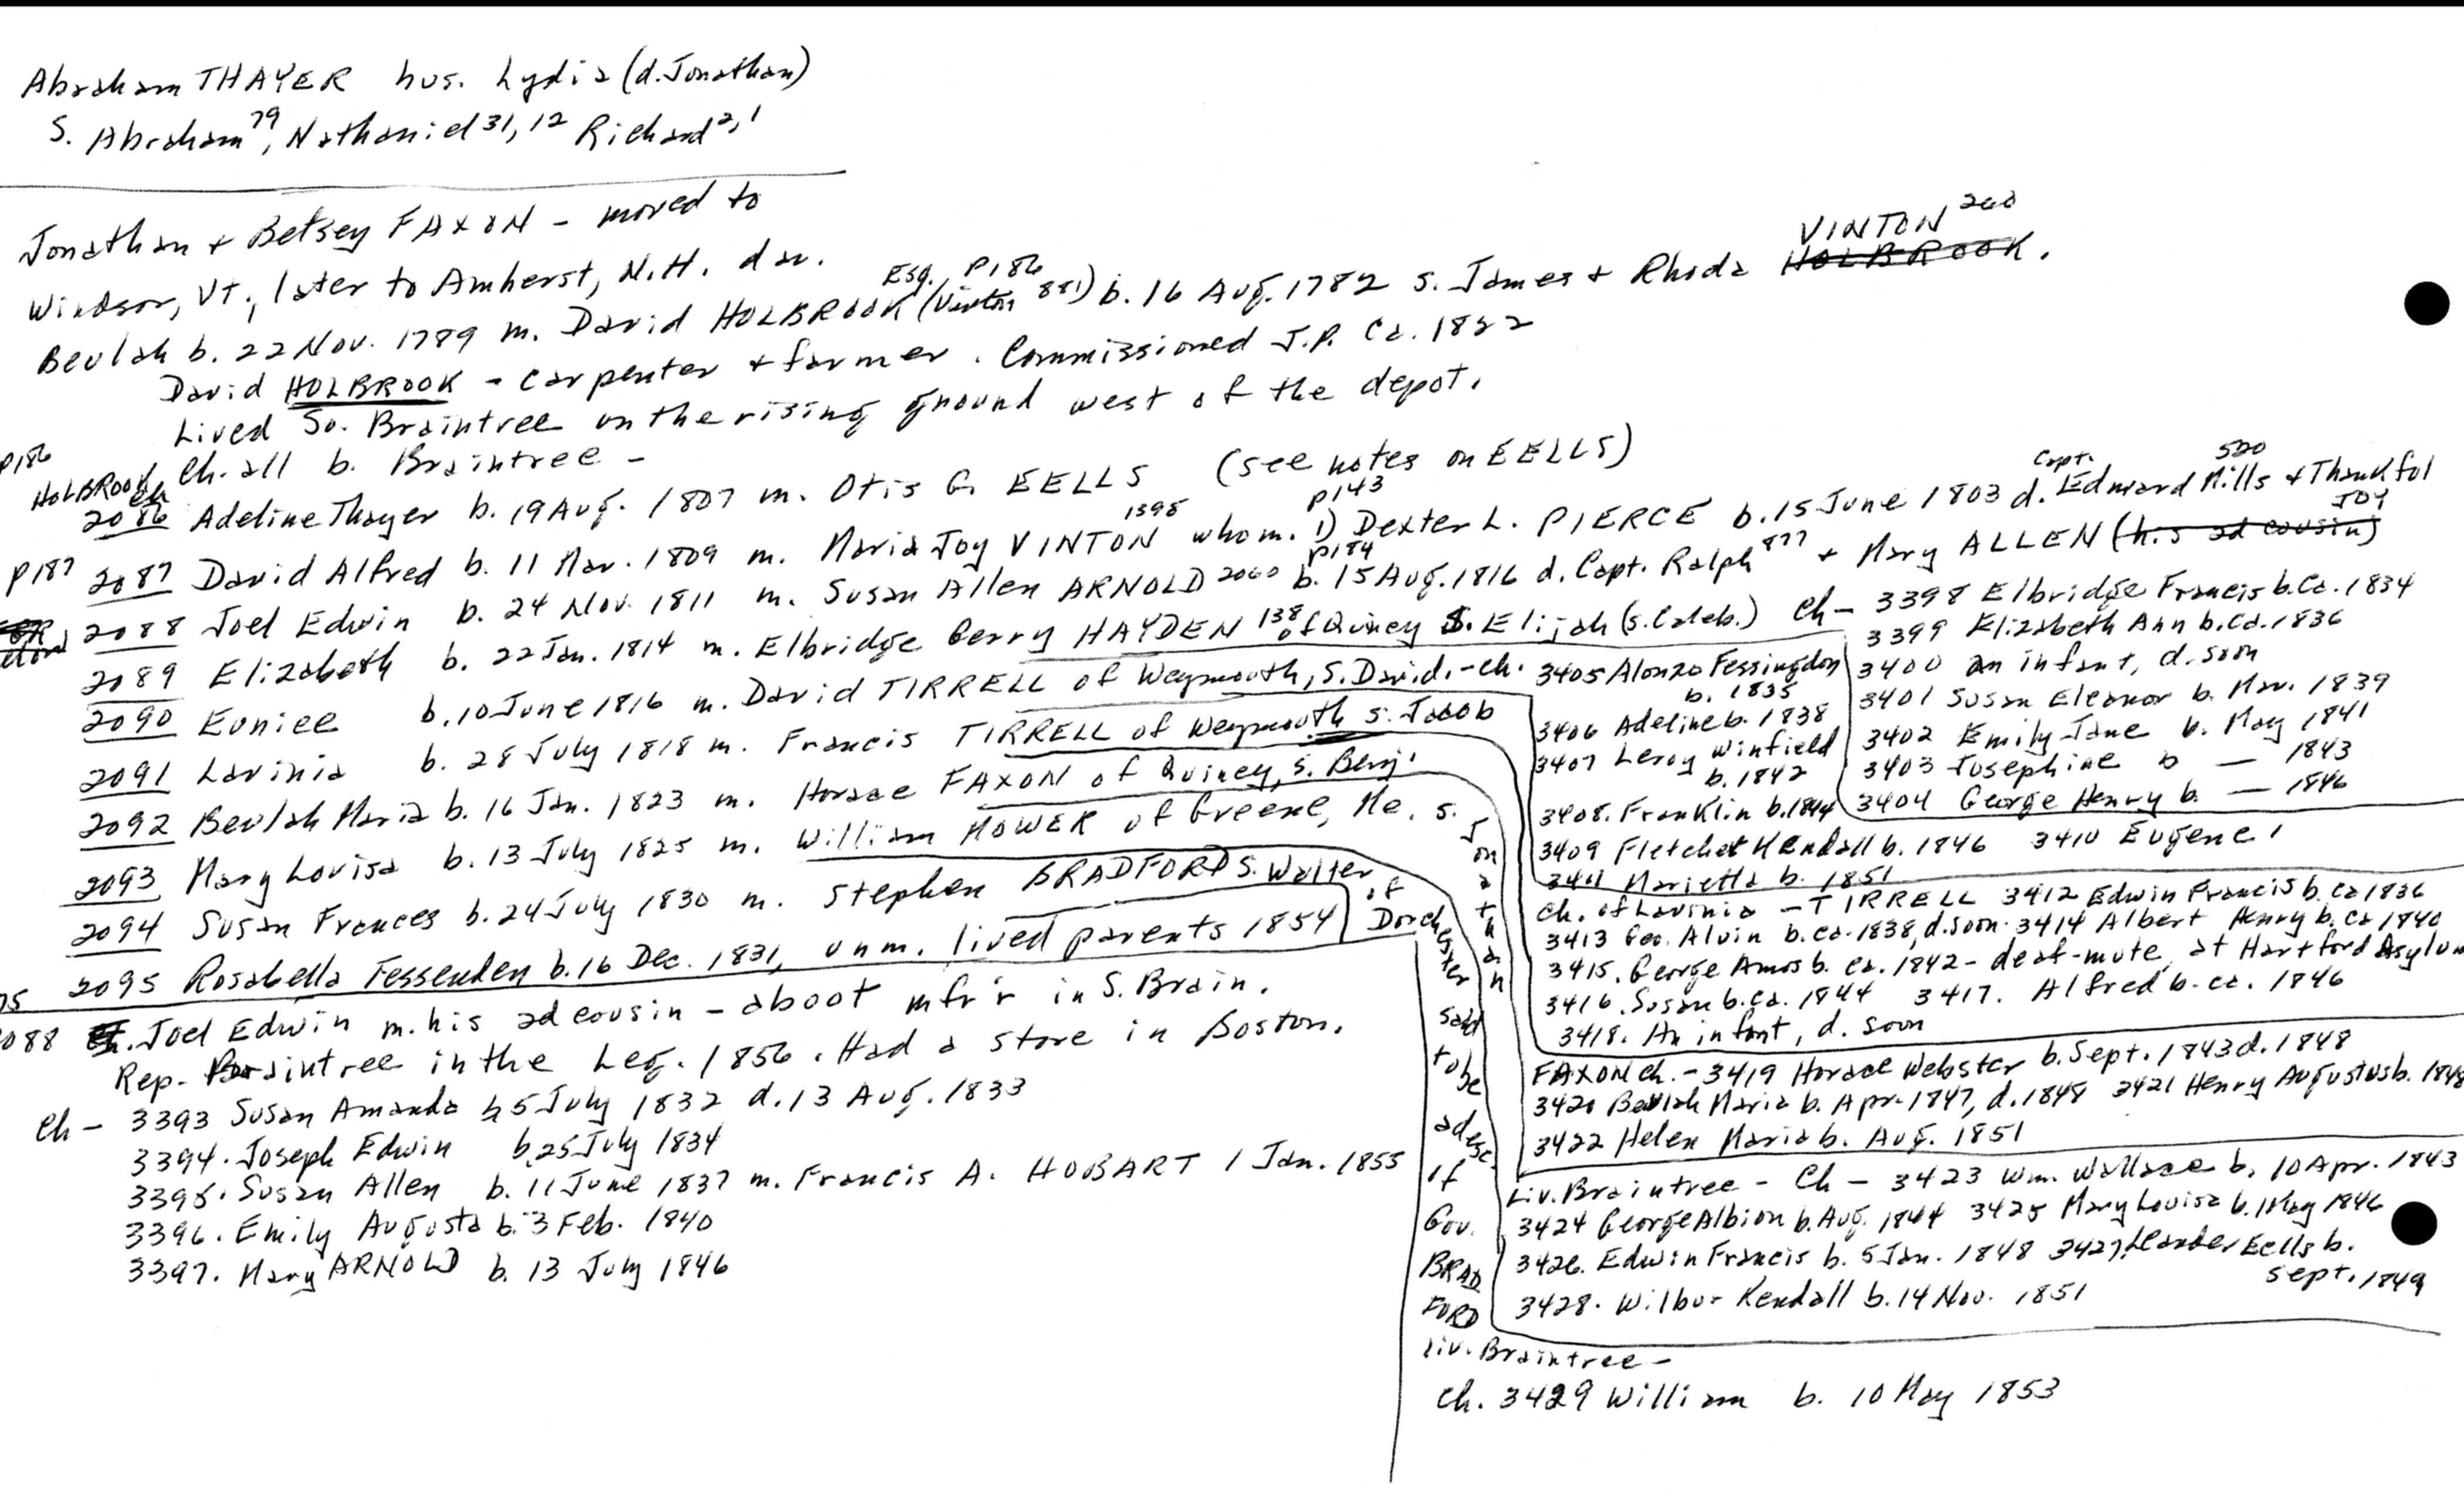 Abraham THAYER hus. Lydia (d. Jonathan)
S. Abraham 79, Nathaniel 31, 12 Richard 2, 1
Jonathan + Betsey FAXON - moved to
Windsor, Vt., later to Amherst, N.H. dau.
Beulah b. 22 Nov. 1789 m. David HOLBROOK Esq. (Vinton 881) P186 b. 16 Aug. 1782 s. James + Rhoda HOLBROOK. VINTON 260
David HOLBROOK - carpenter + farmer. Commissioned J.P. Ca. 1822
Lived So. Braintree on the rising ground west of the depot.
P186 HOLBROOK ch
Ch. all b. Braintree -
2086 Adeline Thayer b. 19 Aug. 1807 m. Otis G. EELLS (see notes on EELLS)
P187 2087 David Alfred b. 11 Mar. 1809 m. Maria Joy VINTON 1395 who m. 1) P143 Dexter L. PIERCE b. 15 June 1803 d. Capt. Edward Mills 520 + Thankful JOY
2088 Joel Edwin b. 24 Nov. 1811 m. Susan Allen ARNOLD 2060 P184 b. 15 Aug. 1816 d. Capt. Ralph 877 + Mary ALLEN (his 2d cousin)
2089 Elizabeth b. 22 Jan. 1814 m. Elbridge Gerry HAYDEN 138 of Quincy S. Elijah (s. Caleb.)
2090 Eunice b. 10 June 1816 m. David TIRRELL of Weymouth, S. David. - ch.
2091 Lavinia b. 28 July 1818 m. Francis TIRRELL of Weymouth s. Jacob
2092 Beulah Maria b. 16 Jan. 1823 m. Horace FAXON of Quincy, s. Benj.
2093 Mary Lovisa b. 13 July 1825 m. William MOWER of Greene, Me. s. Jonathan
2094 Susan Frances b. 24 July 1830 m. Stephen BRADFORD S. Walter of Dorchester said to be a desc. of Gov. BRADFORD
2095 Rosabella Fessenden b. 16 Dec. 1831, unm. lived parents 1854
2088 Joel Edwin m. his 2d cousin - a boot mfr'r in S. Brain.
Rep. Braintree in the Leg. 1856. Had a store in Boston.
Ch - 3393 Susan Amanda b. 5 July 1832 d. 13 Aug. 1833
3394. Joseph Edwin b. 25 July 1834
3395. Susan Allen b. 11 June 1837 m. Francis A. HOBART 1 Jan. 1855
3396. Emily Augusta b. 3 Feb. 1840
3397. Mary ARNOLD b. 13 July 1846
Ch - 3398 Elbridge Francis b. Ca. 1834
3399 Elizabeth Ann b. Ca. 1836
3400 an infant, d. soon
3401 Susan Eleanor b. Mar. 1839
3402 Emily Jane b. May 1841
3403 Josephine b — 1843
3404 George Henry b. — 1846
3405 Alonzo Fessingdon
b. 1835
3406 Adeline b. 1838
3407 Leroy Winfield
b. 1842
3408. Franklin b. 1844
3409 Fletcher Kendall b. 1846 3410 Eugene
3411 Marietta b. 1851
Ch. of Lavinia - TIRRELL 3412 Edwin Francis b. ca 1836
3413 Geo. Alvin b. ca. 1838, d. soon. 3414 Albert Henry b. ca 1840
3415. George Amos b. ca. 1842 - deaf-mute, at Hartford Asylum
3416. Susan b. ca. 1844 3417. Alfred b. ca. 1846
3418. An infant, d. soon
FAXON ch. - 3419 Horace Webster b. Sept. 1843 d. 1848
3420 Beulah Maria b. Apr. 1847, d. 1848 3421 Henry Augustus b. 1848
3422 Helen Maria b. Aug. 1851
Liv. Braintree - Ch - 3423 Wm. Wallace b. 10 Apr. 1843
3424 George Albion b. Aug. 1844 3425 Mary Lovisa b. 1 May 1846
3426. Edwin Francis b. 5 Jan. 1848 3427. Leander Eells b.
Sept. 1849
3428. Wilbur Kendall b. 14 Nov. 1851
liv. Braintree -
Ch. 3429 William b. 10 May 1853